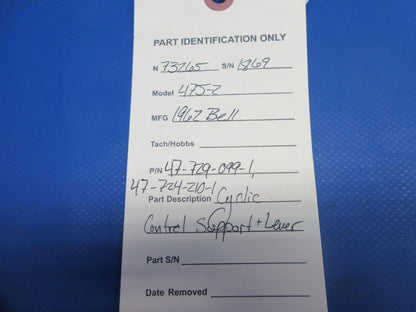 PART IDENTIFICATION ONLY
N 73265 S/N 1869
Model 47J-2
MFG 1962 Bell
Tach/Hobbs
P/N 47-729-099-1,
47-724-210-1
Part Description Cyclic
Control Support + Lever
Part S/N
Date Removed